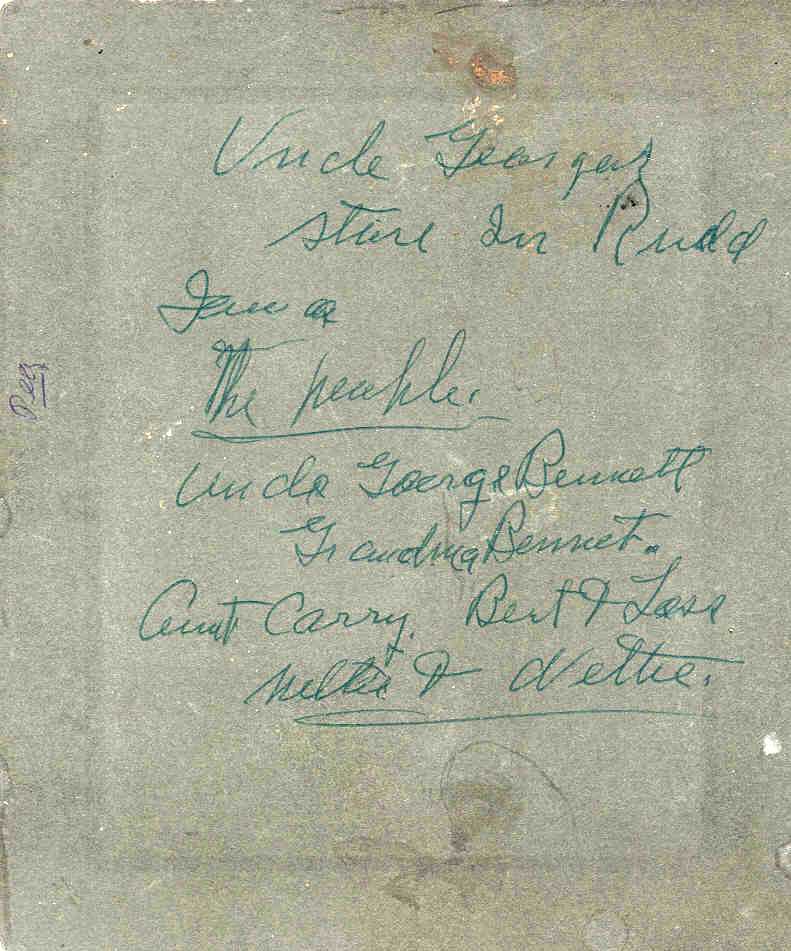 Uncle Georges
store In Rudd
Iowa
The people.
Uncle George Bennett
Grandma Bennet.
Aunt Carry. Bert &
& Nettie.
Peg